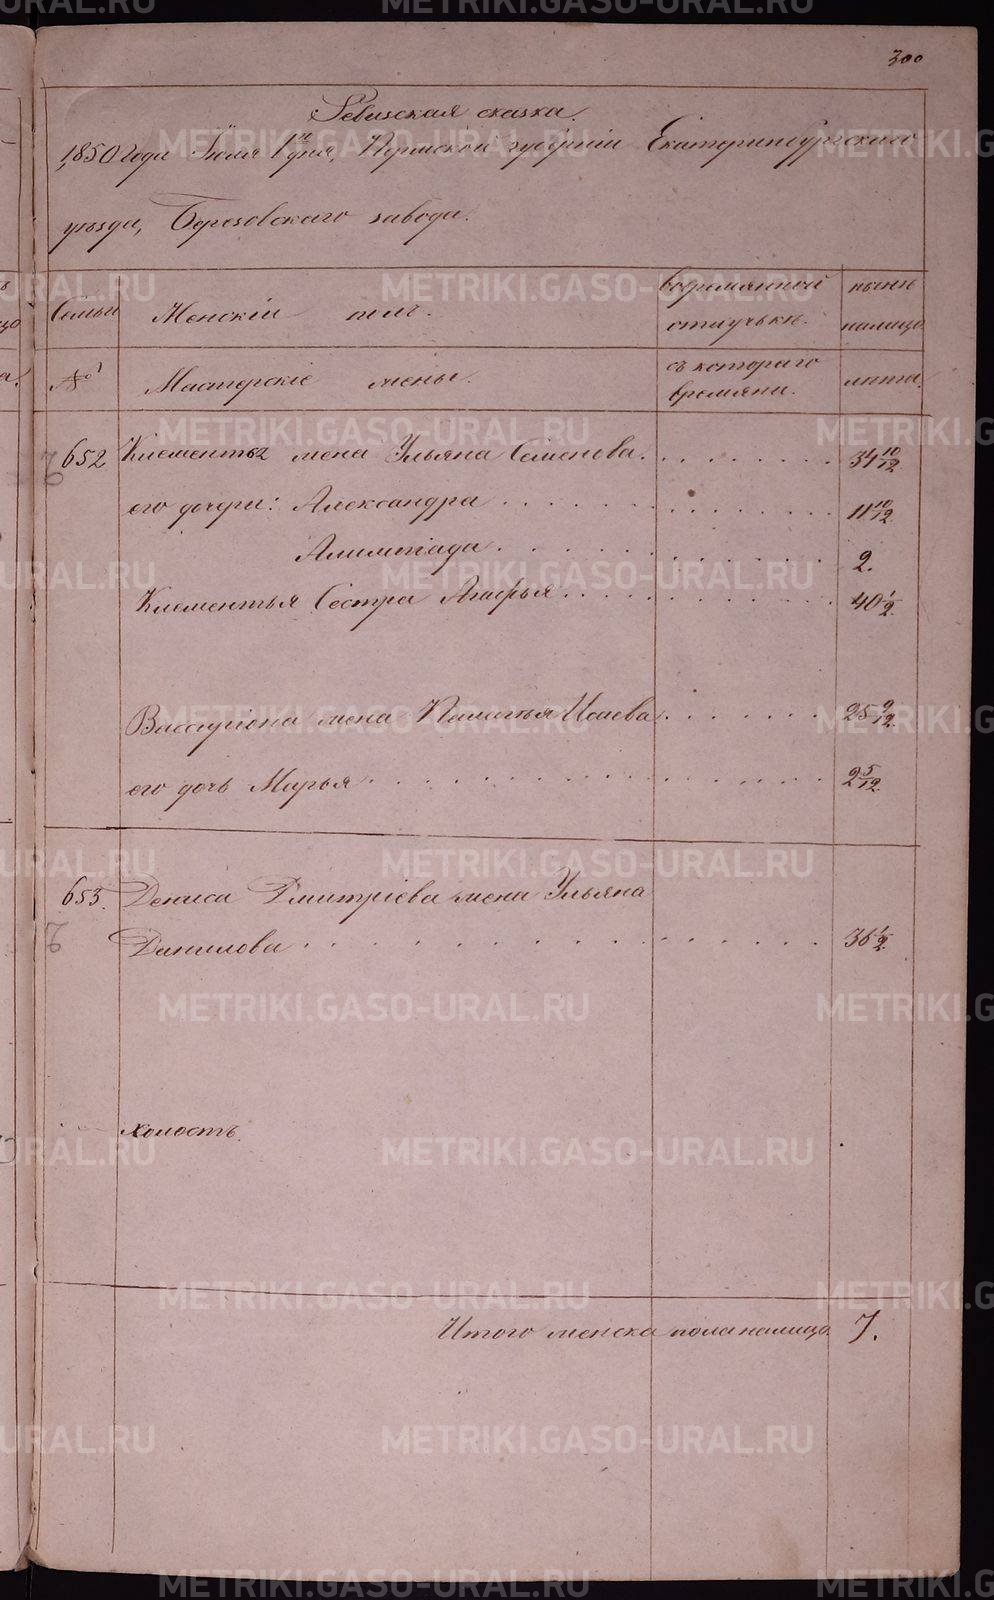 300
Ревизская сказка.
1850 года Июля 1го дня, Пермской губернiи Екатеринбургскаго
уѣзда, Березовскаго завода.
Семьи
Женскiй полъ.
Вовремянной
отлучькѣ.
нынѣ
налицо
№
Мастерскiе жены.
съ котораго
времяни.
лѣта.
652
Клементья жена Ульяна Семенова. 34 10/12
его дочери: Александра 11 10/12
Алимпiада 2.
Клементья Сестра Агафья 40 1/2.
Виссарiона жена Пелагья Исаева 25 9/12.
его дочь Марья 2 5/12.
653. Дениса Дмитрiева жена Ульяна
Данилова 36 1/2.
холостъ.
Итого женска пола налицо 7.
METRIKI.GASO-URAL.RU